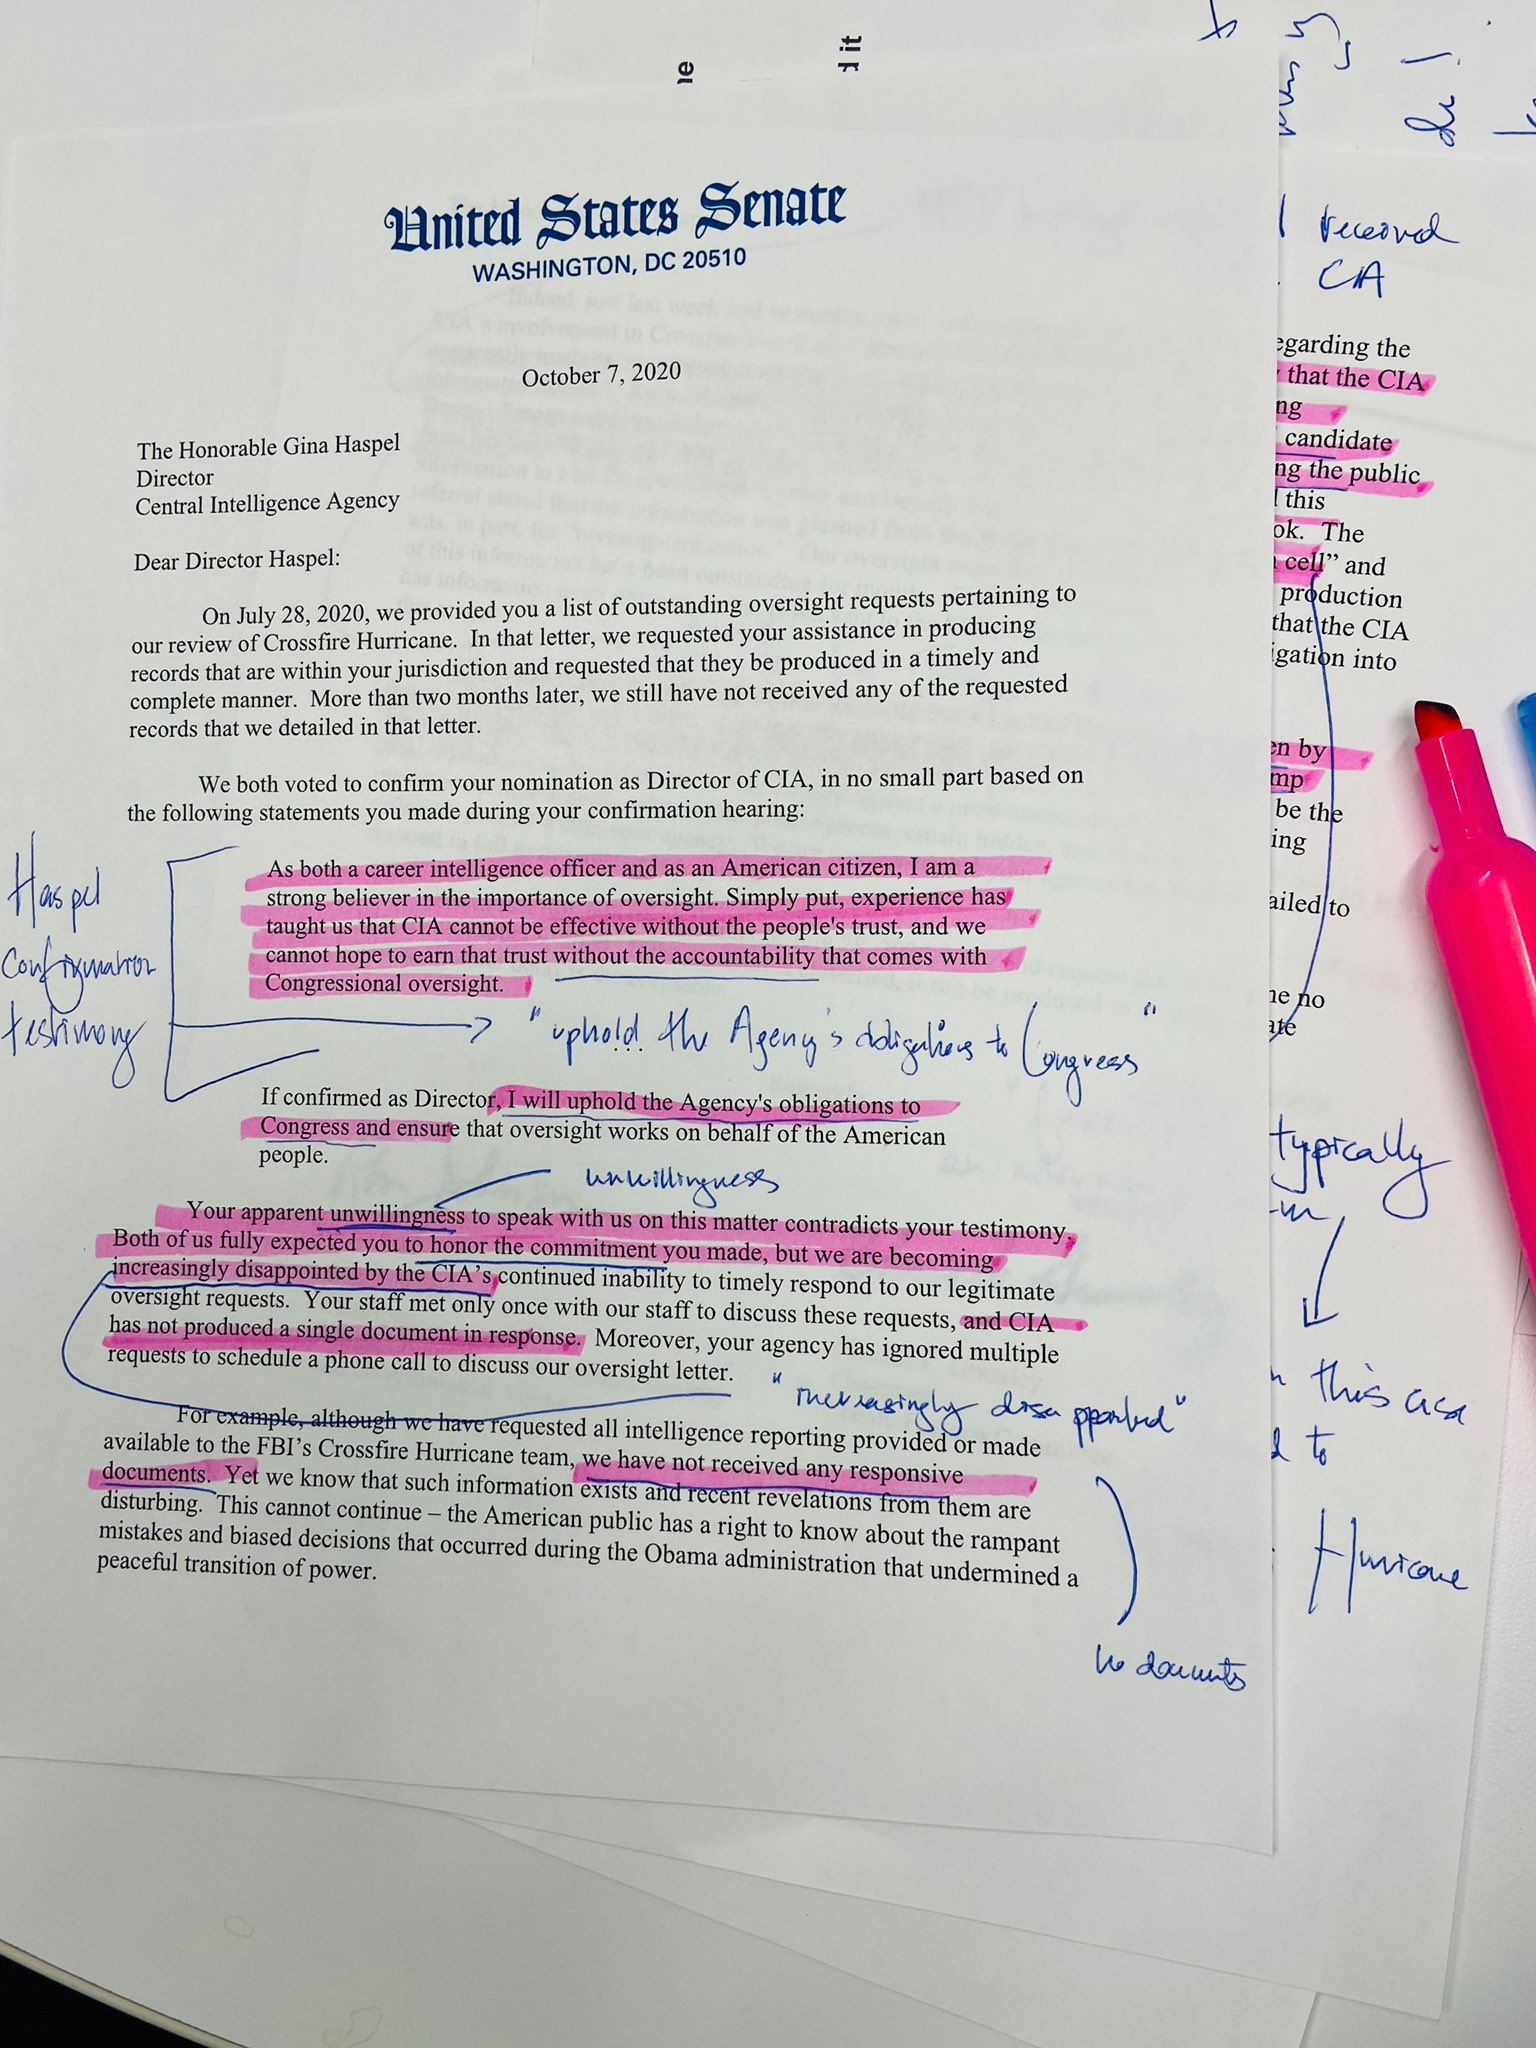 ne
d it
United States Senate
WASHINGTON, DC 20510
October 7, 2020
The Honorable Gina Haspel
Director
Central Intelligence Agency
Dear Director Haspel:
On July 28, 2020, we provided you a list of outstanding oversight requests pertaining to
our review of Crossfire Hurricane. In that letter, we requested your assistance in producing
records that are within your jurisdiction and requested that they be produced in a timely and
complete manner. More than two months later, we still have not received any of the requested
records that we detailed in that letter.
We both voted to confirm your nomination as Director of CIA, in no small part based on
the following statements you made during your confirmation hearing:
Haspel
confirmation
testimony
As both a career intelligence officer and as an American citizen, I am a
strong believer in the importance of oversight. Simply put, experience has
taught us that CIA cannot be effective without the people's trust, and we
cannot hope to earn that trust without the accountability that comes with
Congressional oversight.
"uphold the Agency's obligations to Congress"
If confirmed as Director, I will uphold the Agency's obligations to
Congress and ensure that oversight works on behalf of the American
people.
unwillingness
Your apparent unwillingness to speak with us on this matter contradicts your testimony.
Both of us fully expected you to honor the commitment you made, but we are becoming
increasingly disappointed by the CIA's continued inability to timely respond to our legitimate
oversight requests. Your staff met only once with our staff to discuss these requests, and CIA
has not produced a single document in response. Moreover, your agency has ignored multiple
requests to schedule a phone call to discuss our oversight letter.
"increasingly disappointed"
For example, although we have requested all intelligence reporting provided or made
available to the FBI's Crossfire Hurricane team, we have not received any responsive
documents. Yet we know that such information exists and recent revelations from them are
disturbing. This cannot continue – the American public has a right to know about the rampant
mistakes and biased decisions that occurred during the Obama administration that undermined a
peaceful transition of power.
no documents
received
CIA
egarding the
that the CIA
ng
candidate
ng the public
this
ok. The
cell" and
production
that the CIA
igation into
en by
mp
be the
ing
ailed to
ne no
ate
typically
this case
to
Hurricane